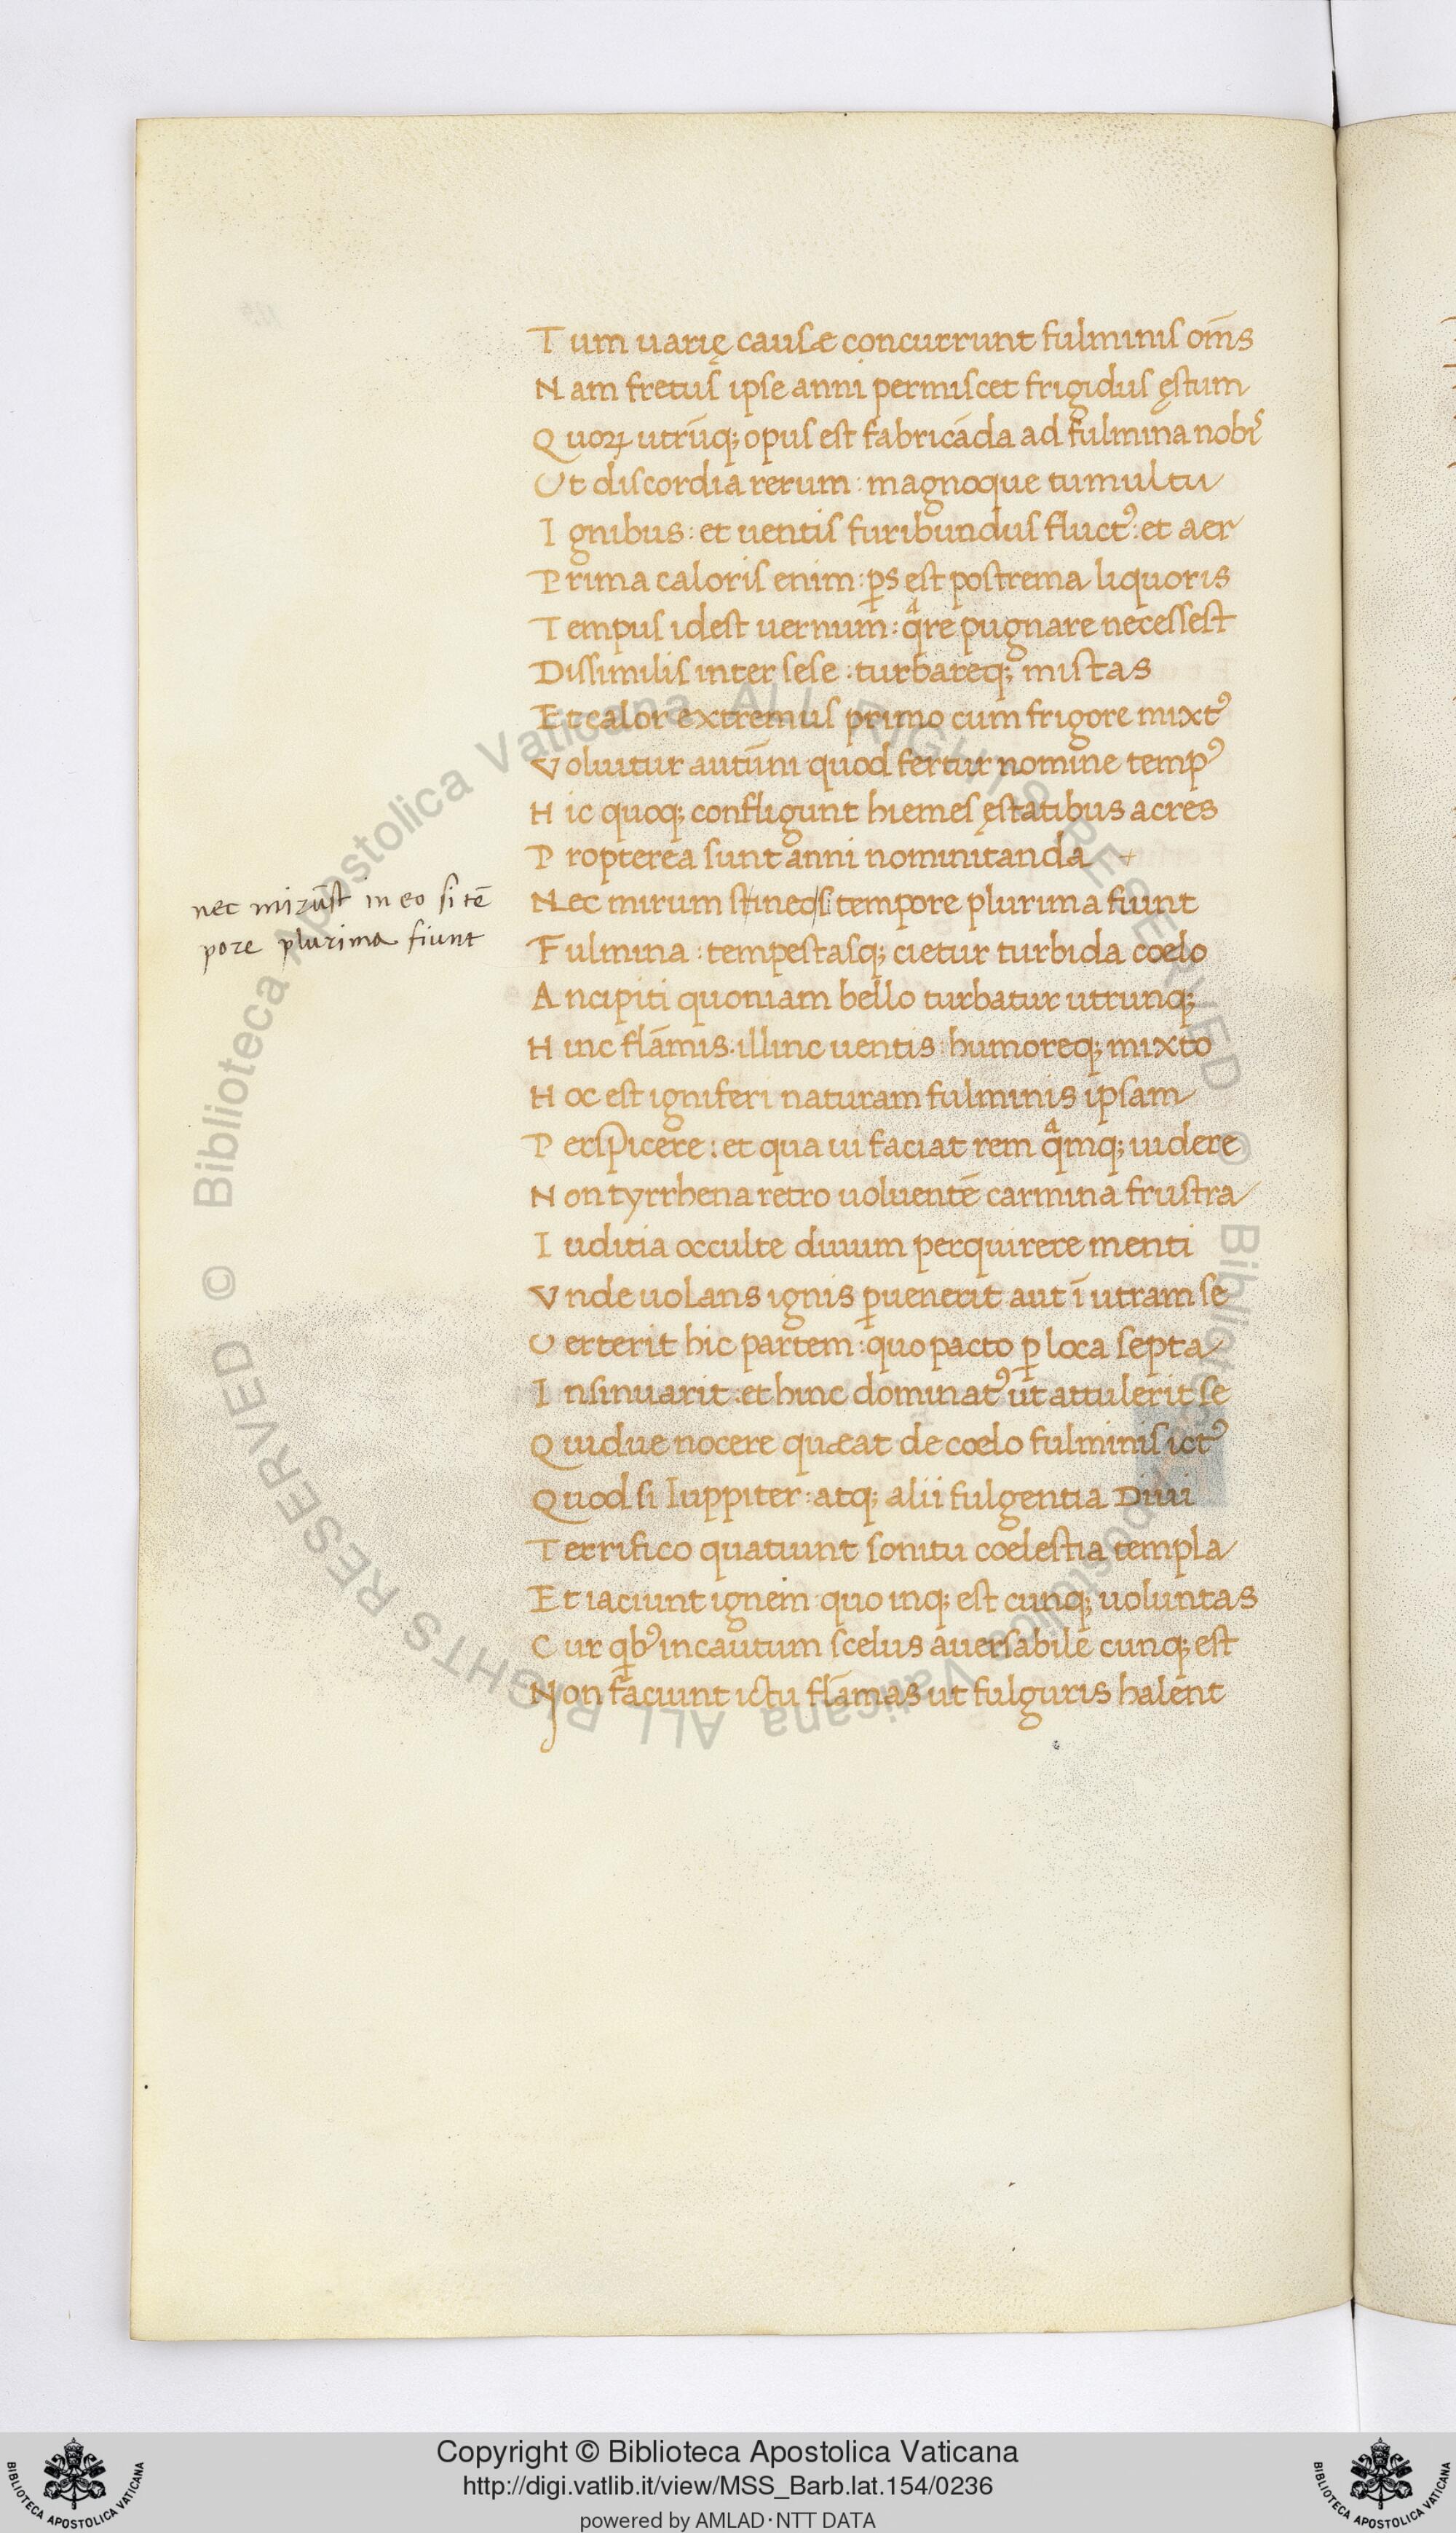 Tum uarię causæ concurrunt fulminis om̄s
Nam fretus ipse anni permiscet frigidus ęstum
Quoꝝ utrūq; opus est fabricāda ad fulmina nobis
Ut discordia rerum : magnoque tumultu
Ignibus : et uentis furibundus fluctꝰ : et aer
Prima caloris enim : ꝑs est postrema liquoris
Tempus idest uernum : qͣre pugnare necessest
Dissimilis inter sese : turbareq; mistas
Et calor extremus primo cum frigore mixtꝰ
Voluitur autūni quod fertur nomine tempꝰ
Hic quoq; confligunt hiemes ęstatibus acres
Propterea sunt anni nominitanda +
nec mirūst in eo si tē
pore plurima fiunt
Nec mirum st ineo si tempore plurima fiunt
Fulmina : tempestasq; cietur turbida coelo
Ancipiti quoniam bello turbatur utrunq;
Hinc flāmis. illinc uentis : humoreq; mixto
Hoc est igniferi naturam fulminis ipsam
Perspicere : et qua ui faciat rem qͣmq; uidere
Non tyrrhena retro uoluentē carmina frustra
Iuditia occulte diuum perquirere menti
Vnde uolans ignis ꝑuenerit aut ī utram se
Uerterit hic partem : quo pacto ꝑ loca septa
Insinuarit : et hinc dominatꝰ ut attulerit se
Quidue nocere quæat de coelo fulminis ictꝰ
Quod si Iuppiter : atq; alii fulgentia Diui
Terrifico quatiunt sonitu coelestia templa
Et iaciunt ignem : quo inq; est cunq; uoluntas
Cur qbꝰ incautum scelus auersabile cunq; est
Non faciunt ictu flāmas ut fulguris halent
Copyright © Biblioteca Apostolica Vaticana
http://digi.vatlib.it/view/MSS_Barb.lat.154/0236
powered by AMLAD·NTT DATA
© Biblioteca Apostolica Vaticana ALL RIGHTS RESERVED
© Biblioteca Apostolica Vaticana ALL RIGHTS RESERVED
BIBLIOTECA APOSTOLICA VATICANA
BIBLIOTECA APOSTOLICA VATICANA